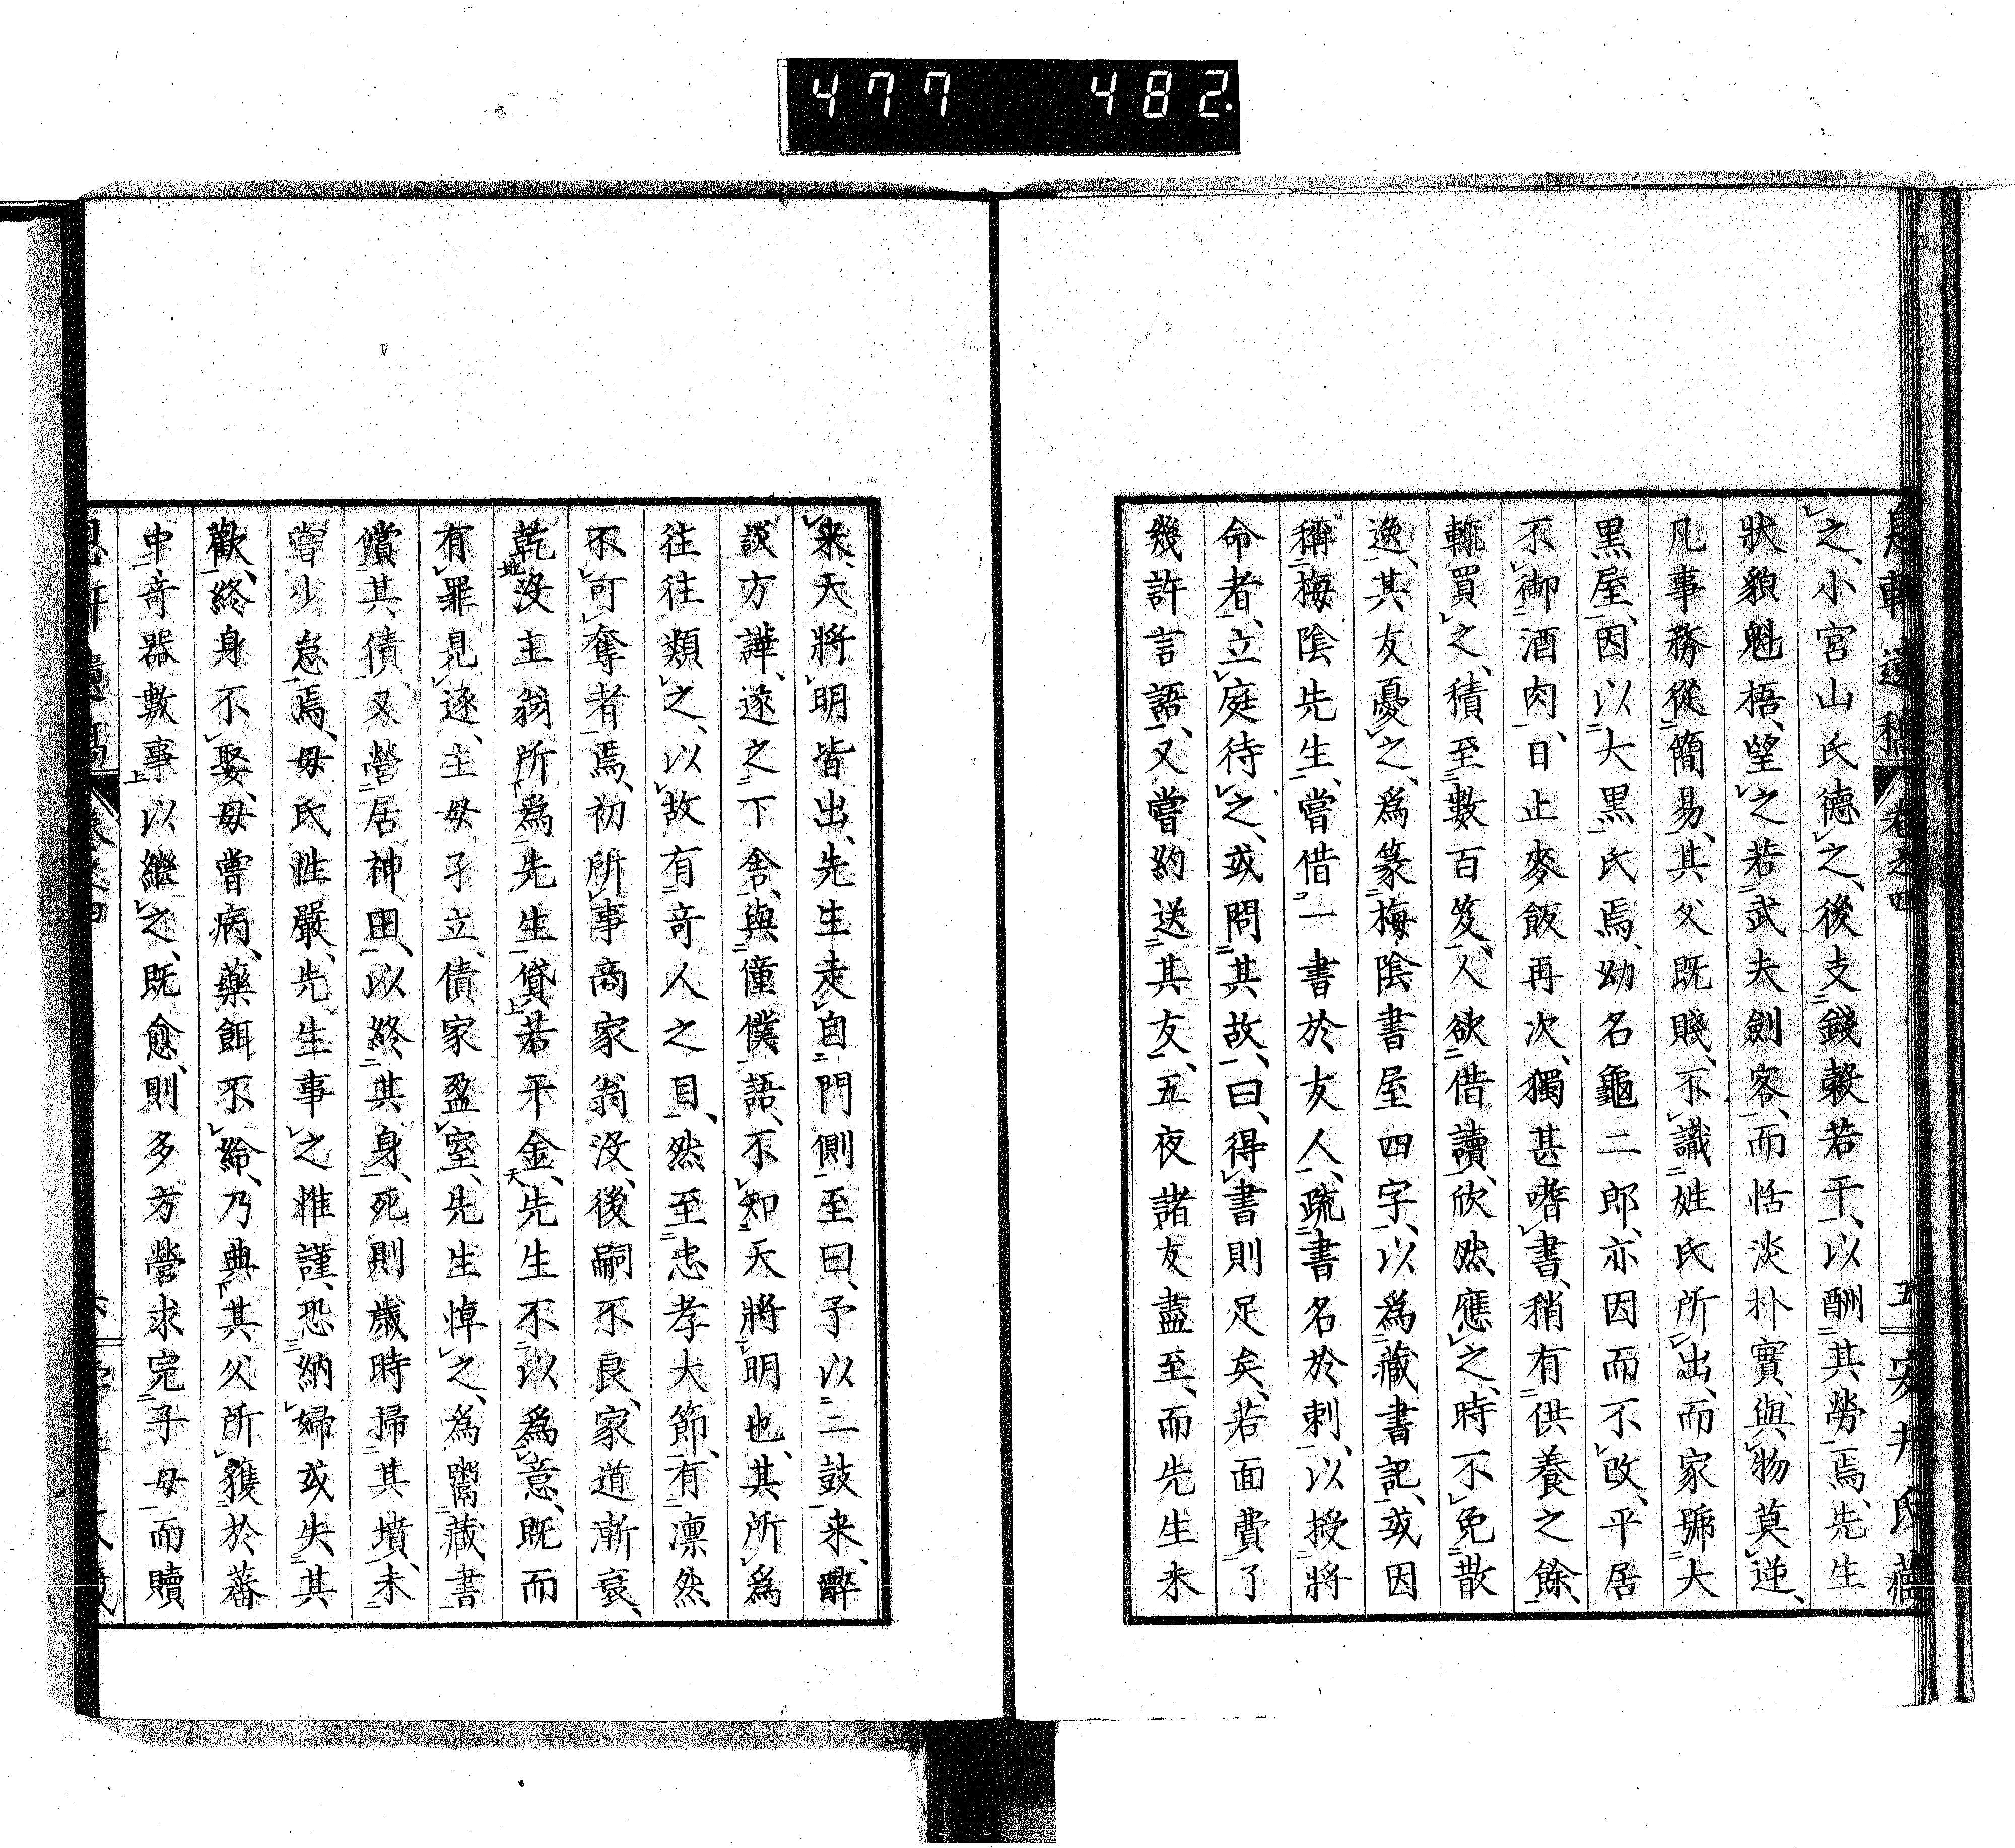 477 482.
息軒遺稿 卷之四 五 安井氏藏
之、小宮山氏德之、後支錢穀若干、以酬其勞焉、先生
狀貌魁梧、望之若武夫劍客、而恬淡朴實、與物莫逆、
凡事務從簡易、其父既賤、不識姓氏所出、而家號大
黑屋、因以大黑氏焉、幼名龜二郎、亦因而不改、平居
不御酒肉、日止麥飯再次、獨甚嗜書、稍有供養之餘、
輒買之、積至數百笈、人欲借讀、欣然應之、時不免散
逸、其友憂之、爲篆梅陰書屋四字、以爲藏書記、或因
稱梅陰先生、嘗借一書於友人、疏書名於刺、以授將
命者、立庭待之、或問其故、曰、得書則足矣、若面費了
幾許言語、又嘗約送其友、五夜諸友盡至、而先生未
來、天將明皆出、先生走自門側至曰、予以二鼓来、醉
談方譁、遂之下舍、與僮僕語、不知天將明也、其所爲
往往類之、以故有奇人之目、然至忠孝大節、有凜然
不可奪者焉、初所事商家翁没、後嗣不良、家道漸衰、
乾没主翁所爲先生貸若干金、先生不以爲意、既而
有罪見逐、主母孑立、債家盈室、先生悼之、爲鬻藏書
償其債、又營居神田、以終其身、死則歲時掃其墳、未
嘗少怠焉、母氏性嚴、先生事之惟謹、恐納婦或失其
歡、終身不娶、母嘗病、藥餌不給、乃典其父所獲於蕃
中奇器數事以繼之、既愈、則多方營求完子母而贖